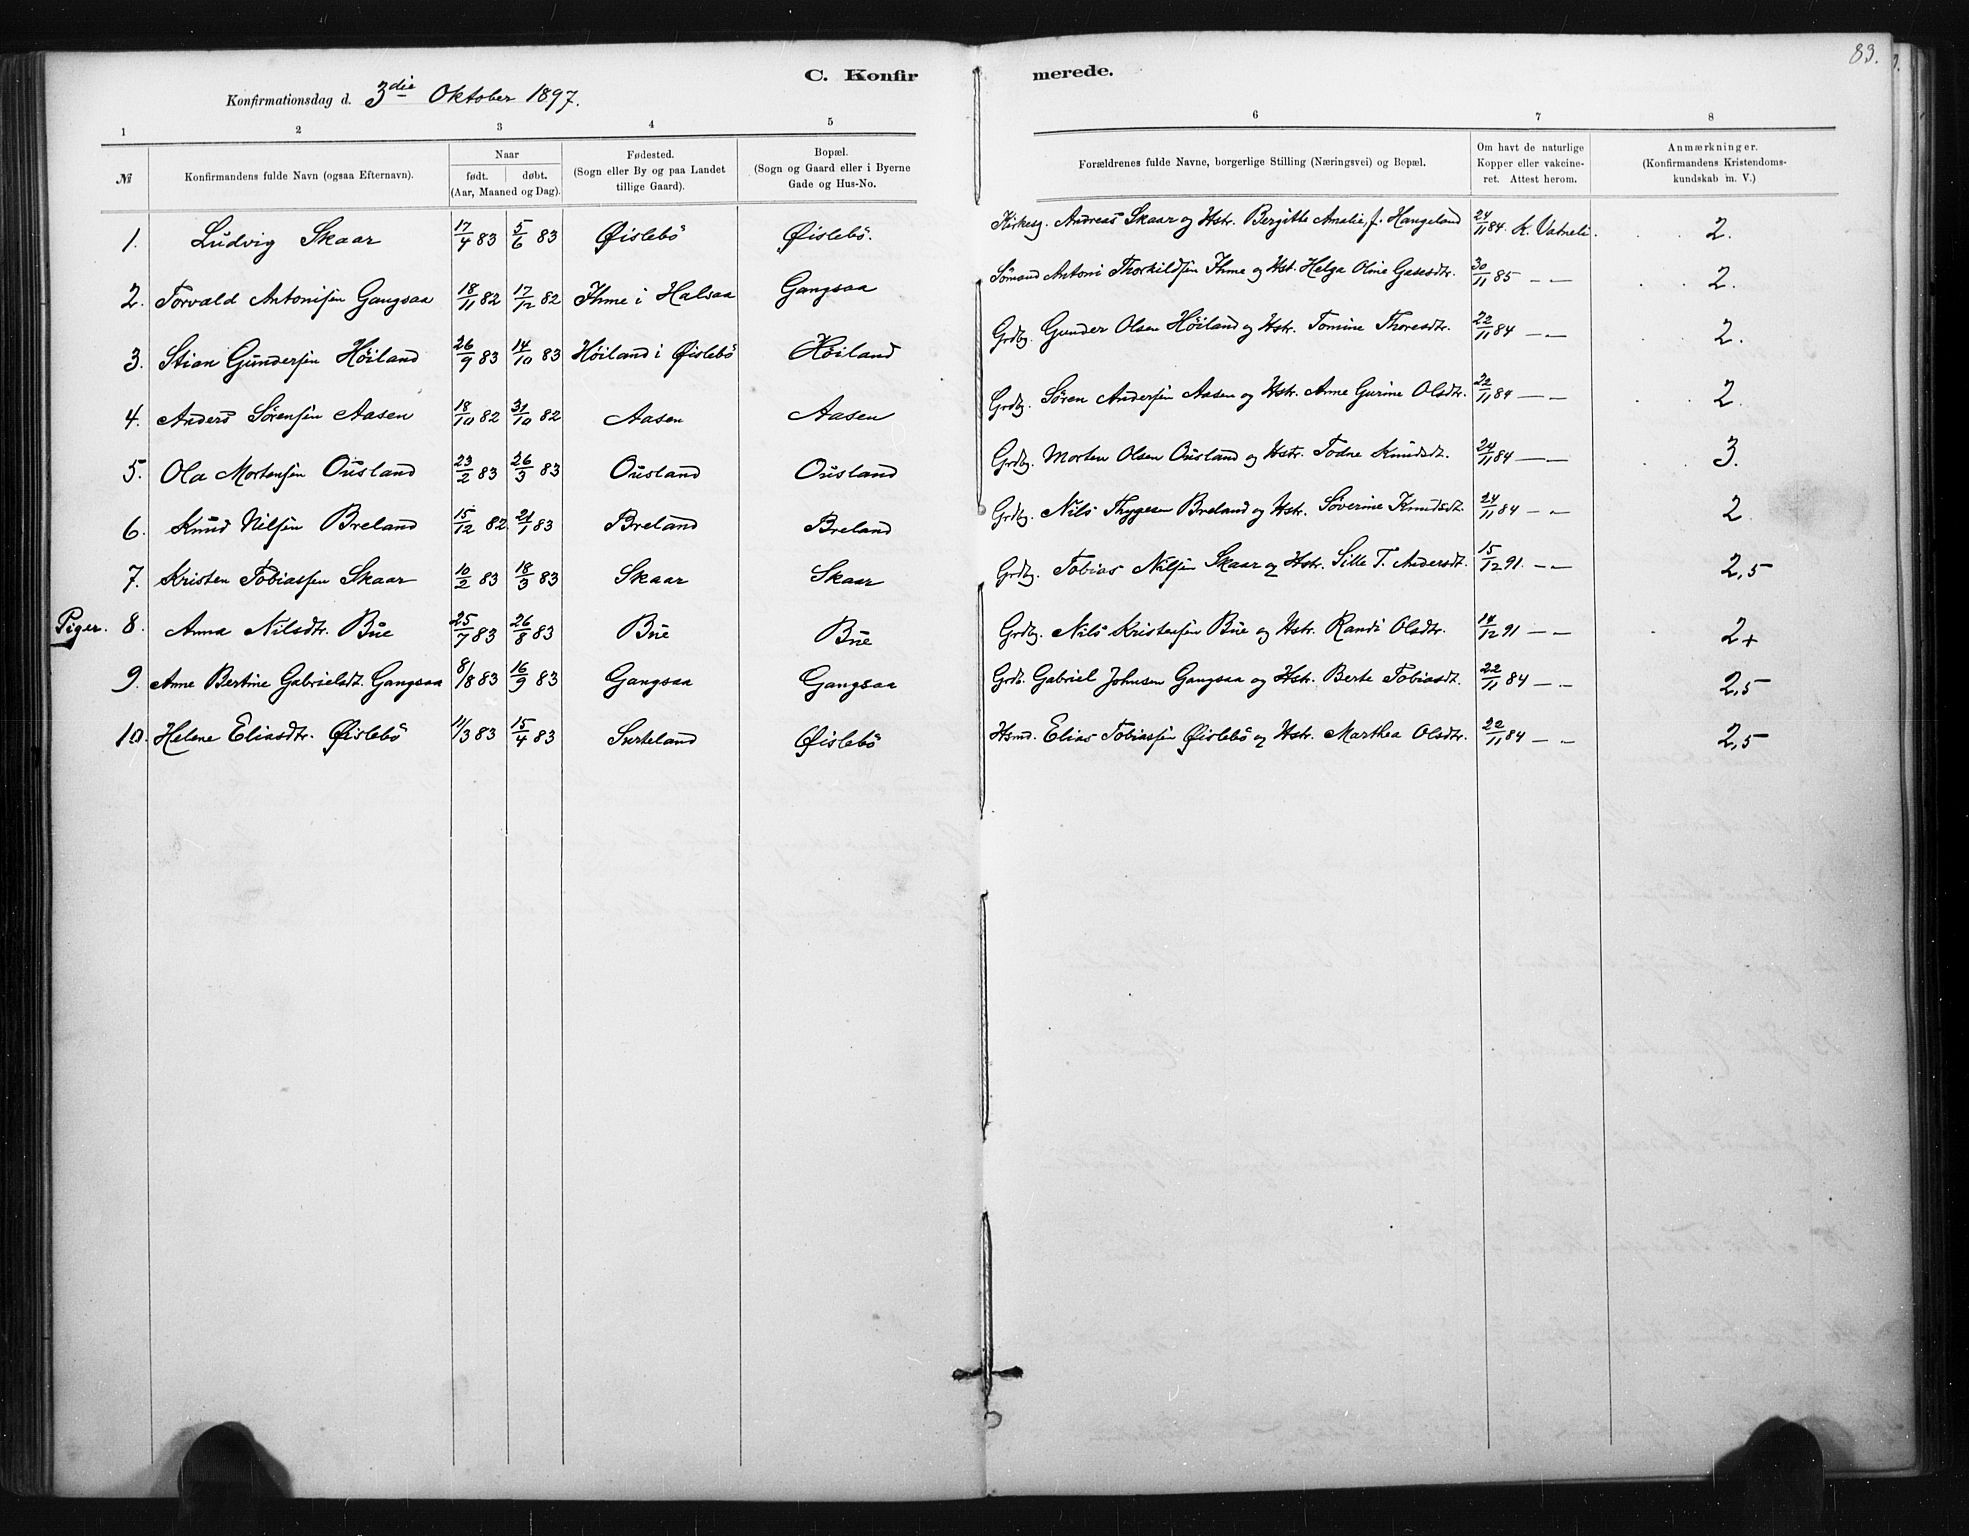 83.
C. Konfirmerede.
Konfirmationsdag d. 3die Oktober 1897.
1 2 3 4 5 6 7 8
№
Konfirmandens fulde Navn (ogsaa Efternavn).
Naar
født. døbt.
(Aar, Maaned og Dag).
Fødested.
(Sogn eller By og paa Landet
tillige Gaard).
Bopæl.
(Sogn og Gaard eller i Byerne
Gade og Hus-No.
Forældrenes fulde Navne, borgerlige Stilling (Næringsvei) og Bopæl.
Om havt de naturlige
Kopper eller vakcine-
ret. Attest herom.
Anmærkninger.
(Konfirmandens Kristendoms-
kundskab m. V.)
1. Ludvig Skaar 17/4 83 5/6 83 Øislebö Øislebö. Kirkesg. Andreas Skaar og Hstr. Bergitte Amalie f. Haugeland 24/11 84. K. Vatneli. 2.
2. Torvald Antonisen Gangsaa 18/11 82 17/12 82 Ihme i Halsaa Gangsaa Sömand Antoni Thorkildsen Ihme og Hst. Helga Oline Gabesdtr. 30/11 85 — — 2.
3. Stian Gundersen Höiland 26/9 83 14/10 83 Höiland i Øislebö Höiland Grdbg. Gunder Olsen Höiland og Hstr. Tomine Thoresdtr. 22/11 84 — — 2.
4. Anders Sörensen Aasen 18/10 82 31/10 82 Aasen Aasen Grdbg. Sören Andersen Aasen og Hstr. Anne Gurine Olsdtr. 22/11 84 — — 2.
5. Ola Mortensen Ousland 23/2 83 26/3 83 Ousland Ousland Grdbg. Morten Olsen Ousland og Hstr. Todne Knudsdt. 24/11 84 — — 3.
6. Knud Nilsen Breland 15/12 82 21/1 83 Breland Breland Grdbg. Nils Thygesen Breland og Hstr. Söverine Knudsdt. 24/11 84 — — 2
7. Kristen Tobiassen Skaar 10/2 83 18/3 83 Skaar Skaar Grdbg. Tobias Nilsen Skaar og Hstr. Sille T. Andersdt. 15/12 91. — — 2,5
Piger. 8. Anna Nilsdtr. Bue 25/7 83 26/8 83 Bue Bue Grdbg. Nils Kristensen Bue og Hstr. Randi Olsdtr. 14/12 91 — — 2+
9. Anne Bertine Gabrielsdt. Gangsaa 8/8 83 16/9 83 Gangsaa Gangsaa Grdb. Gabriel Johnsen Gangsaa og Hstr. Berte Tobiasdt. 22/11 84 — — 2,5
10. Helene Eliasdtr. Øislebö 11/3 83 15/4 83 Øislebö Hsmd. Elias Tobiassen Øislebö og Hstr. Marthea Olsdtr. 22/11 84 — — 2,5